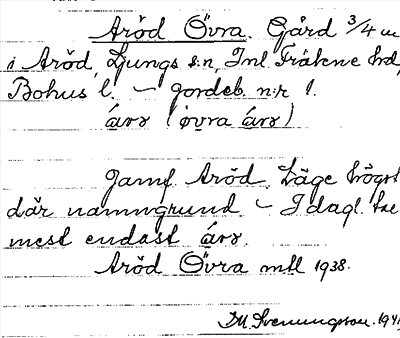 Aröd Övra. Gård 3/4 m
i Aröd, Ljungs s:n, Inl. Fräkne hd,
Bohus l. – Jordeb. n:r 1.
árö (övra árö)
Jämf. Aröd. Läge högst
där namngrund – I dagl. tal
mest endast árö.
Aröd Övra mtl 1938.
D.M. Svenungsson. 1941